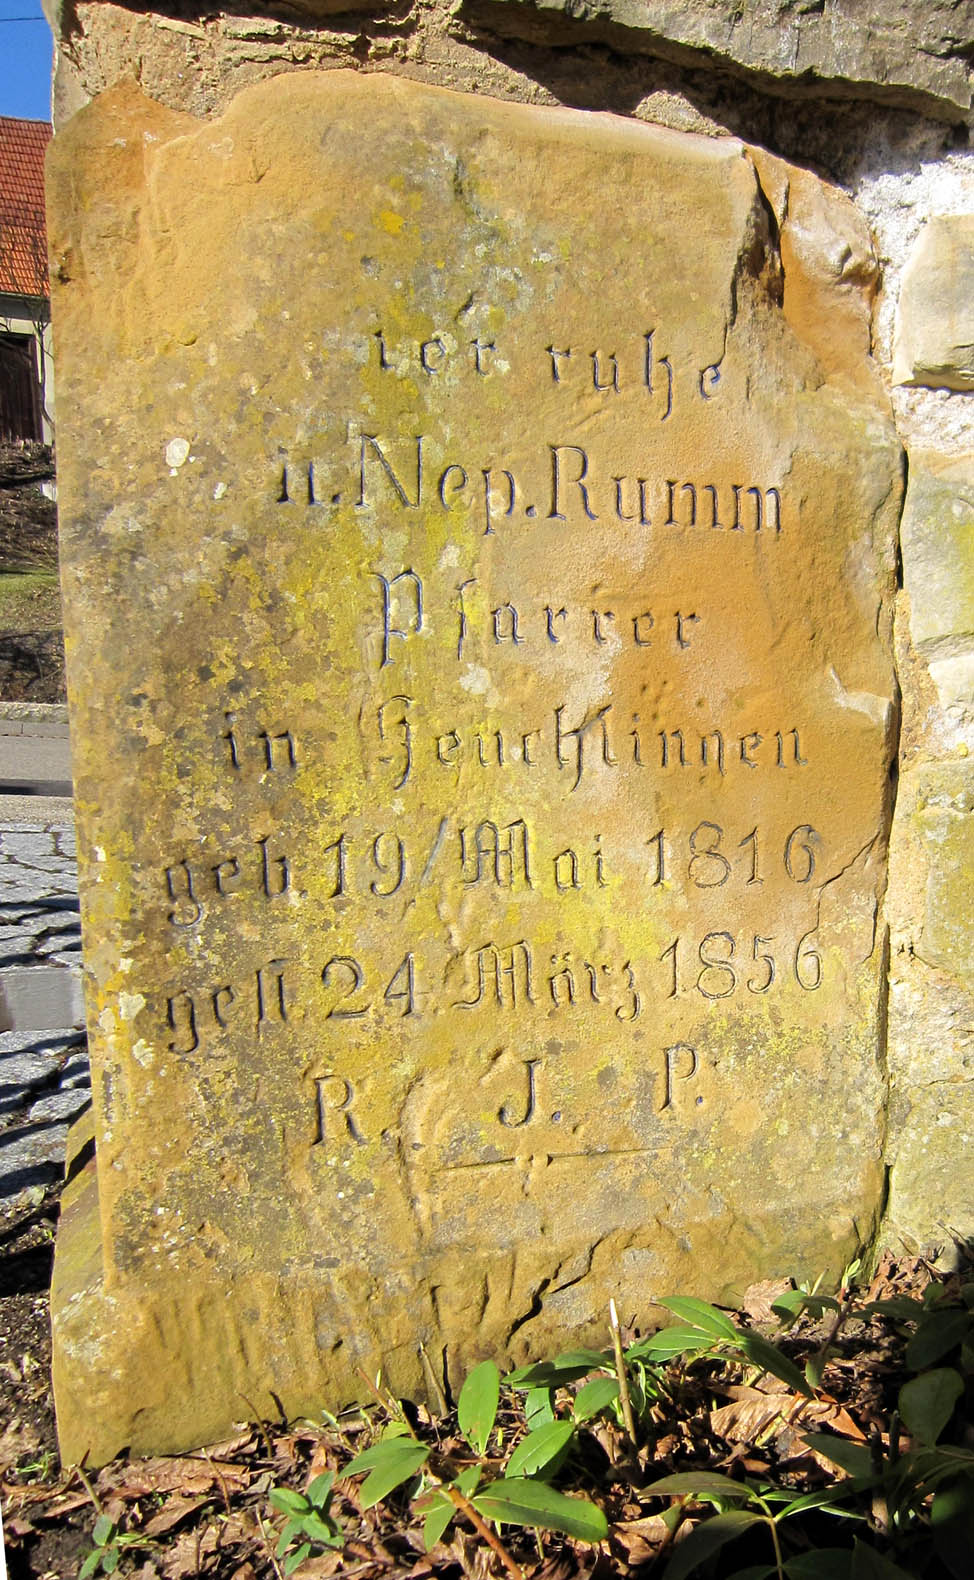 ier ruhe
h. Nep. Rumm
Pfarrer
in Heuchlingen
geb. 19/ Mai 1816
gest. 24. März 1856
R. J. P.